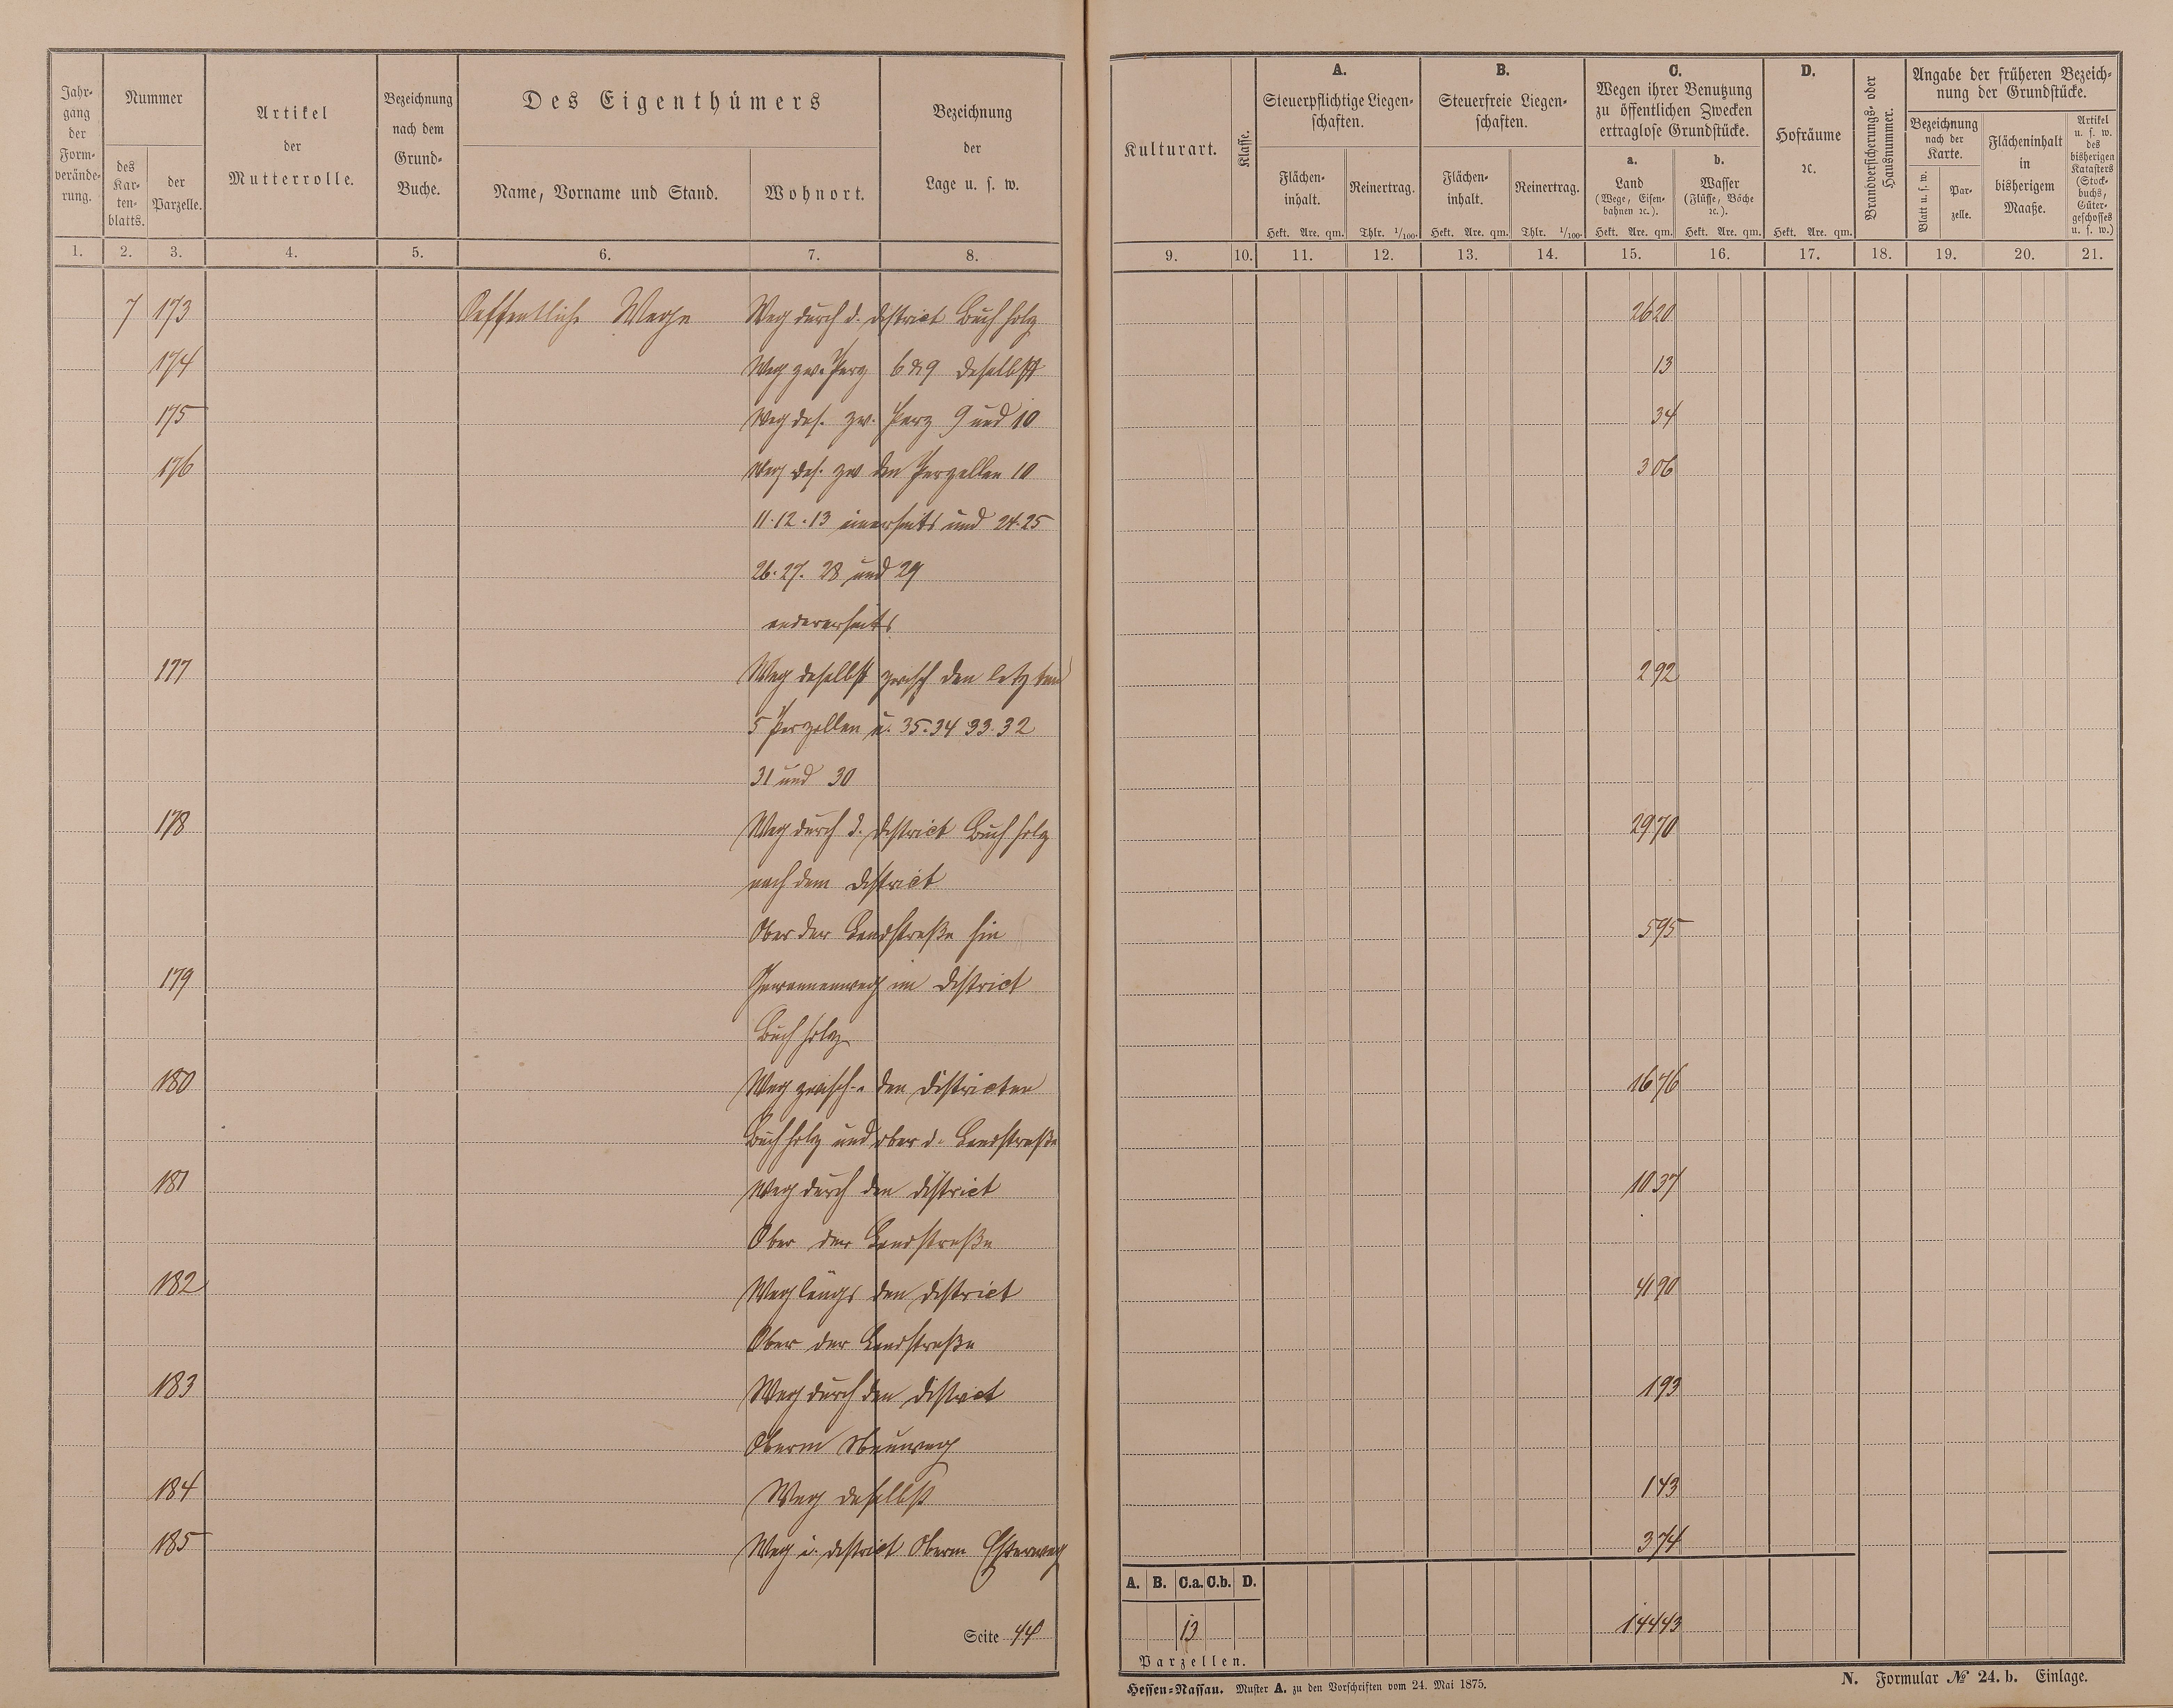 Jahr-
gang
der
Form-
verände-
rung.
Nummer
des
Kar-
ten-
blatts.
der
Parzelle.
Artikel
der
Mutterrolle.
Bezeichnung
nach dem
Grund-
Buche.
Des Eigenthümers
Name, Vorname und Stand.
Wohnort.
Bezeichnung
der
Lage u. s. w.
1. 2. 3. 4. 5. 6. 7. 8.
7 173 Oeffentliche Wege Weg durch d. District Buchholz
174 Weg zw. Parz 6 & 9 daselbst
175 Weg das. zw. Parz 9 und 10
176 Weg das. zw den Parzellen 10
11. 12. 13 einerseits und 24. 25
26. 27. 28 und 29
andererseits
177 Weg daselbst zwisch den letzten
5 Parzellen u. 35. 34 33. 32
31 und 30
178 Weg durch d. District Buchholz
nach dem District
Ober der Landstraße hin
179 Gewannenweg im District
Buchholz
180 Weg zwisch. den Districten
Buchholz und ober d. Landstraße
181 Weg durch den District
Ober der Landstraße
182 Weg längs den District
Ober der Landstraße
183 Weg durch den District
Oberm
184 Weg daselbst
185 Weg i. District Oberm
Seite 44
Kulturart.
Klasse.
A.
Steuerpflichtige Liegen-
schaften.
Flächen-
inhalt.
Hekt. Are. qm.
Reinertrag.
Thlr. 1/100.
B.
Steuerfreie Liegen-
schaften.
Flächen-
inhalt.
Hekt. Are. qm.
Reinertrag.
Thlr. 1/100.
C.
Wegen ihrer Benutzung
zu öffentlichen Zwecken
ertraglose Grundstücke.
a.
Land
(Wege, Eisen-
bahnen ꝛc.).
Hekt. Are. qm.
b.
Wasser
(Flüsse, Bäche
ꝛc.).
Hekt. Are. qm.
D.
Hofräume
ꝛc.
Hekt. Are. qm.
Brandversicherungs- oder
Hausnummer.
Angabe der früheren Bezeich-
nung der Grundstücke.
Bezeichnung
nach der
Karte.
Blatt u. s. w.
Par-
zelle.
Flächeninhalt
in
bisherigem
Maaße.
Artikel
u. s. w.
des
bisherigen
Katasters
(Stock-
buchs,
Güter-
geschosses
u. s. w.)
9. 10. 11. 12. 13. 14. 15. 16. 17. 18. 19. 20. 21.
2620
13
34
306
292
2970
595
1676
1037
4190
193
143
374
A. B. C.a. C.b. D.
13 14443
Parzellen.
Hessen-Nassau. Muster A. zu den Vorschriften vom 24. Mai 1875.
N. Formular № 24. b. Einlage.